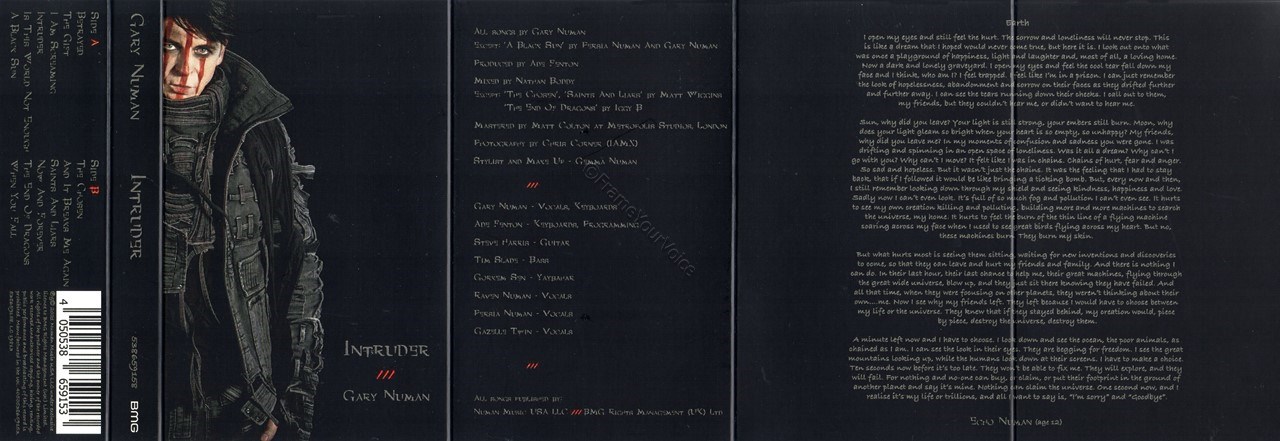 SIDE A
BETRAYED
THE GIFT
I AM SCREAMING
INTRUDER
IS THIS WORLD NOT ENOUGH
A BLACK SUN
SIDE B
THE CHOSEN
AND IT BREAKS ME AGAIN
SAINTS AND LIARS
NOW AND FOREVER
THE END OF DRAGONS
WHEN YOU FALL
4 050538 659153
GARY NUMAN
INTRUDER
538659152
BMG
INTRUDER
///
GARY NUMAN
ALL SONGS BY GARY NUMAN
EXCEPT: 'A BLACK SUN' BY PERSIA NUMAN AND GARY NUMAN
PRODUCED BY ADE FENTON
MIXED BY NATHAN BODDY
EXCEPT: 'THE CHOSEN', 'SAINTS AND LIARS' BY MATT WIGGINS
'THE END OF DRAGONS' BY IGGY B
MASTERED BY MATT COLTON AT METROPOLIS STUDIOS, LONDON
PHOTOGRAPHY BY CHRIS CORNER (IAMX)
STYLIST AND MAKE UP - GEMMA NUMAN
///
GARY NUMAN - VOCALS, KEYBOARDS
ADE FENTON - KEYBOARDS, PROGRAMMING
STEVE HARRIS - GUITAR
TIM SLADE - BASS
GORKEM SEN - YAYBAHAR
RAVEN NUMAN - VOCALS
PERSIA NUMAN - VOCALS
GAZELLE TWIN - VOCALS
///
ALL SONGS PUBLISHED BY:
NUMAN MUSIC USA LLC /// BMG RIGHTS MANAGEMENT (UK) LTD
©FrameYourVoice
Earth
I open my eyes and still feel the hurt. The sorrow and loneliness will never stop. This
is like a dream that I hoped would never come true, but here it is. I look out onto what
was once a playground of happiness, light and laughter and, most of all, a loving home.
Now a dark and lonely graveyard. I open my eyes and feel the cool tear fall down my
face and I think, who am I? I feel trapped. I feel like I'm in a prison. I can just remember
the look of hopelessness, abandonment and sorrow on their faces as they drifted further
and further away. I can see the tears running down their cheeks. I call out to them,
my friends, but they couldn't hear me, or didn't want to hear me.
Sun, why did you leave? Your light is still strong, your embers still burn. Moon, why
does your light gleam so bright when your heart is so empty, so unhappy? My friends,
why did you leave me? In my moments of confusion and sadness you were gone. I was
drifting and spinning in an open space of loneliness. Was it all a dream? Why can't I
go with you? Why can't I move? It felt like I was in chains. Chains of hurt, fear and anger.
So sad and hopeless. But it wasn't just the chains. It was the feeling that I had to stay
back, that if I followed it would be like bringing a ticking bomb. But, every now and then,
I still remember looking down through my shield and seeing kindness, happiness and love.
Sadly now I can't even look. It's full of so much fog and pollution I can't even see. It hurts
to see my own creation killing and polluting, building more and more machines to search
the universe, my home. It hurts to feel the burn of the thin line of a flying machine
soaring across my face when I used to see great birds flying across my heart. But no,
these machines burn. They burn my skin.
But what hurts most is seeing them sitting, waiting for new inventions and discoveries
to come, so that they can leave and hurt my friends and family. And there is nothing I
can do. In their last hour, their last chance to help me, their great machines, flying through
the great wide universe, blow up, and they just sit there knowing they have failed. And
all that time, when they were focusing on other planets, they weren't thinking about their
own....me. Now I see why my friends left. They left because I would have to choose between
my life or the universe. They knew that if they stayed behind, my creation would, piece
by piece, destroy the universe, destroy them.
A minute left now and I have to choose. I look down and see the ocean, the poor animals, as
chained as I am. I can see the look in their eyes. They are begging for freedom. I see the great
mountains looking up, while the humans look down at their screens. I have to make a choice.
Ten seconds now before it's too late. They won't be able to fix me. They will explore, and they
will fail. For nothing and no-one can buy, or claim, or put their footprint in the ground of
another planet and say it's mine. Nothing can claim the universe. One second now, and I
realise it's my life or trillions, and all I want to say is, "I'm sorry" and "Goodbye".
ECHO NUMAN (age 12)